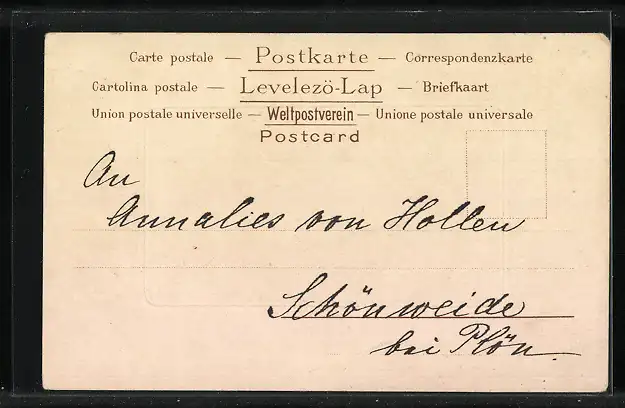 Carte postale — Postkarte — Correspondenzkarte
Cartolina postale — Levelezö-Lap — Briefkaart
Union postale universelle — Weltpostverein — Unione postale universale
Postcard
An
Annalies von Hollen
Schönweide
bei Plön.